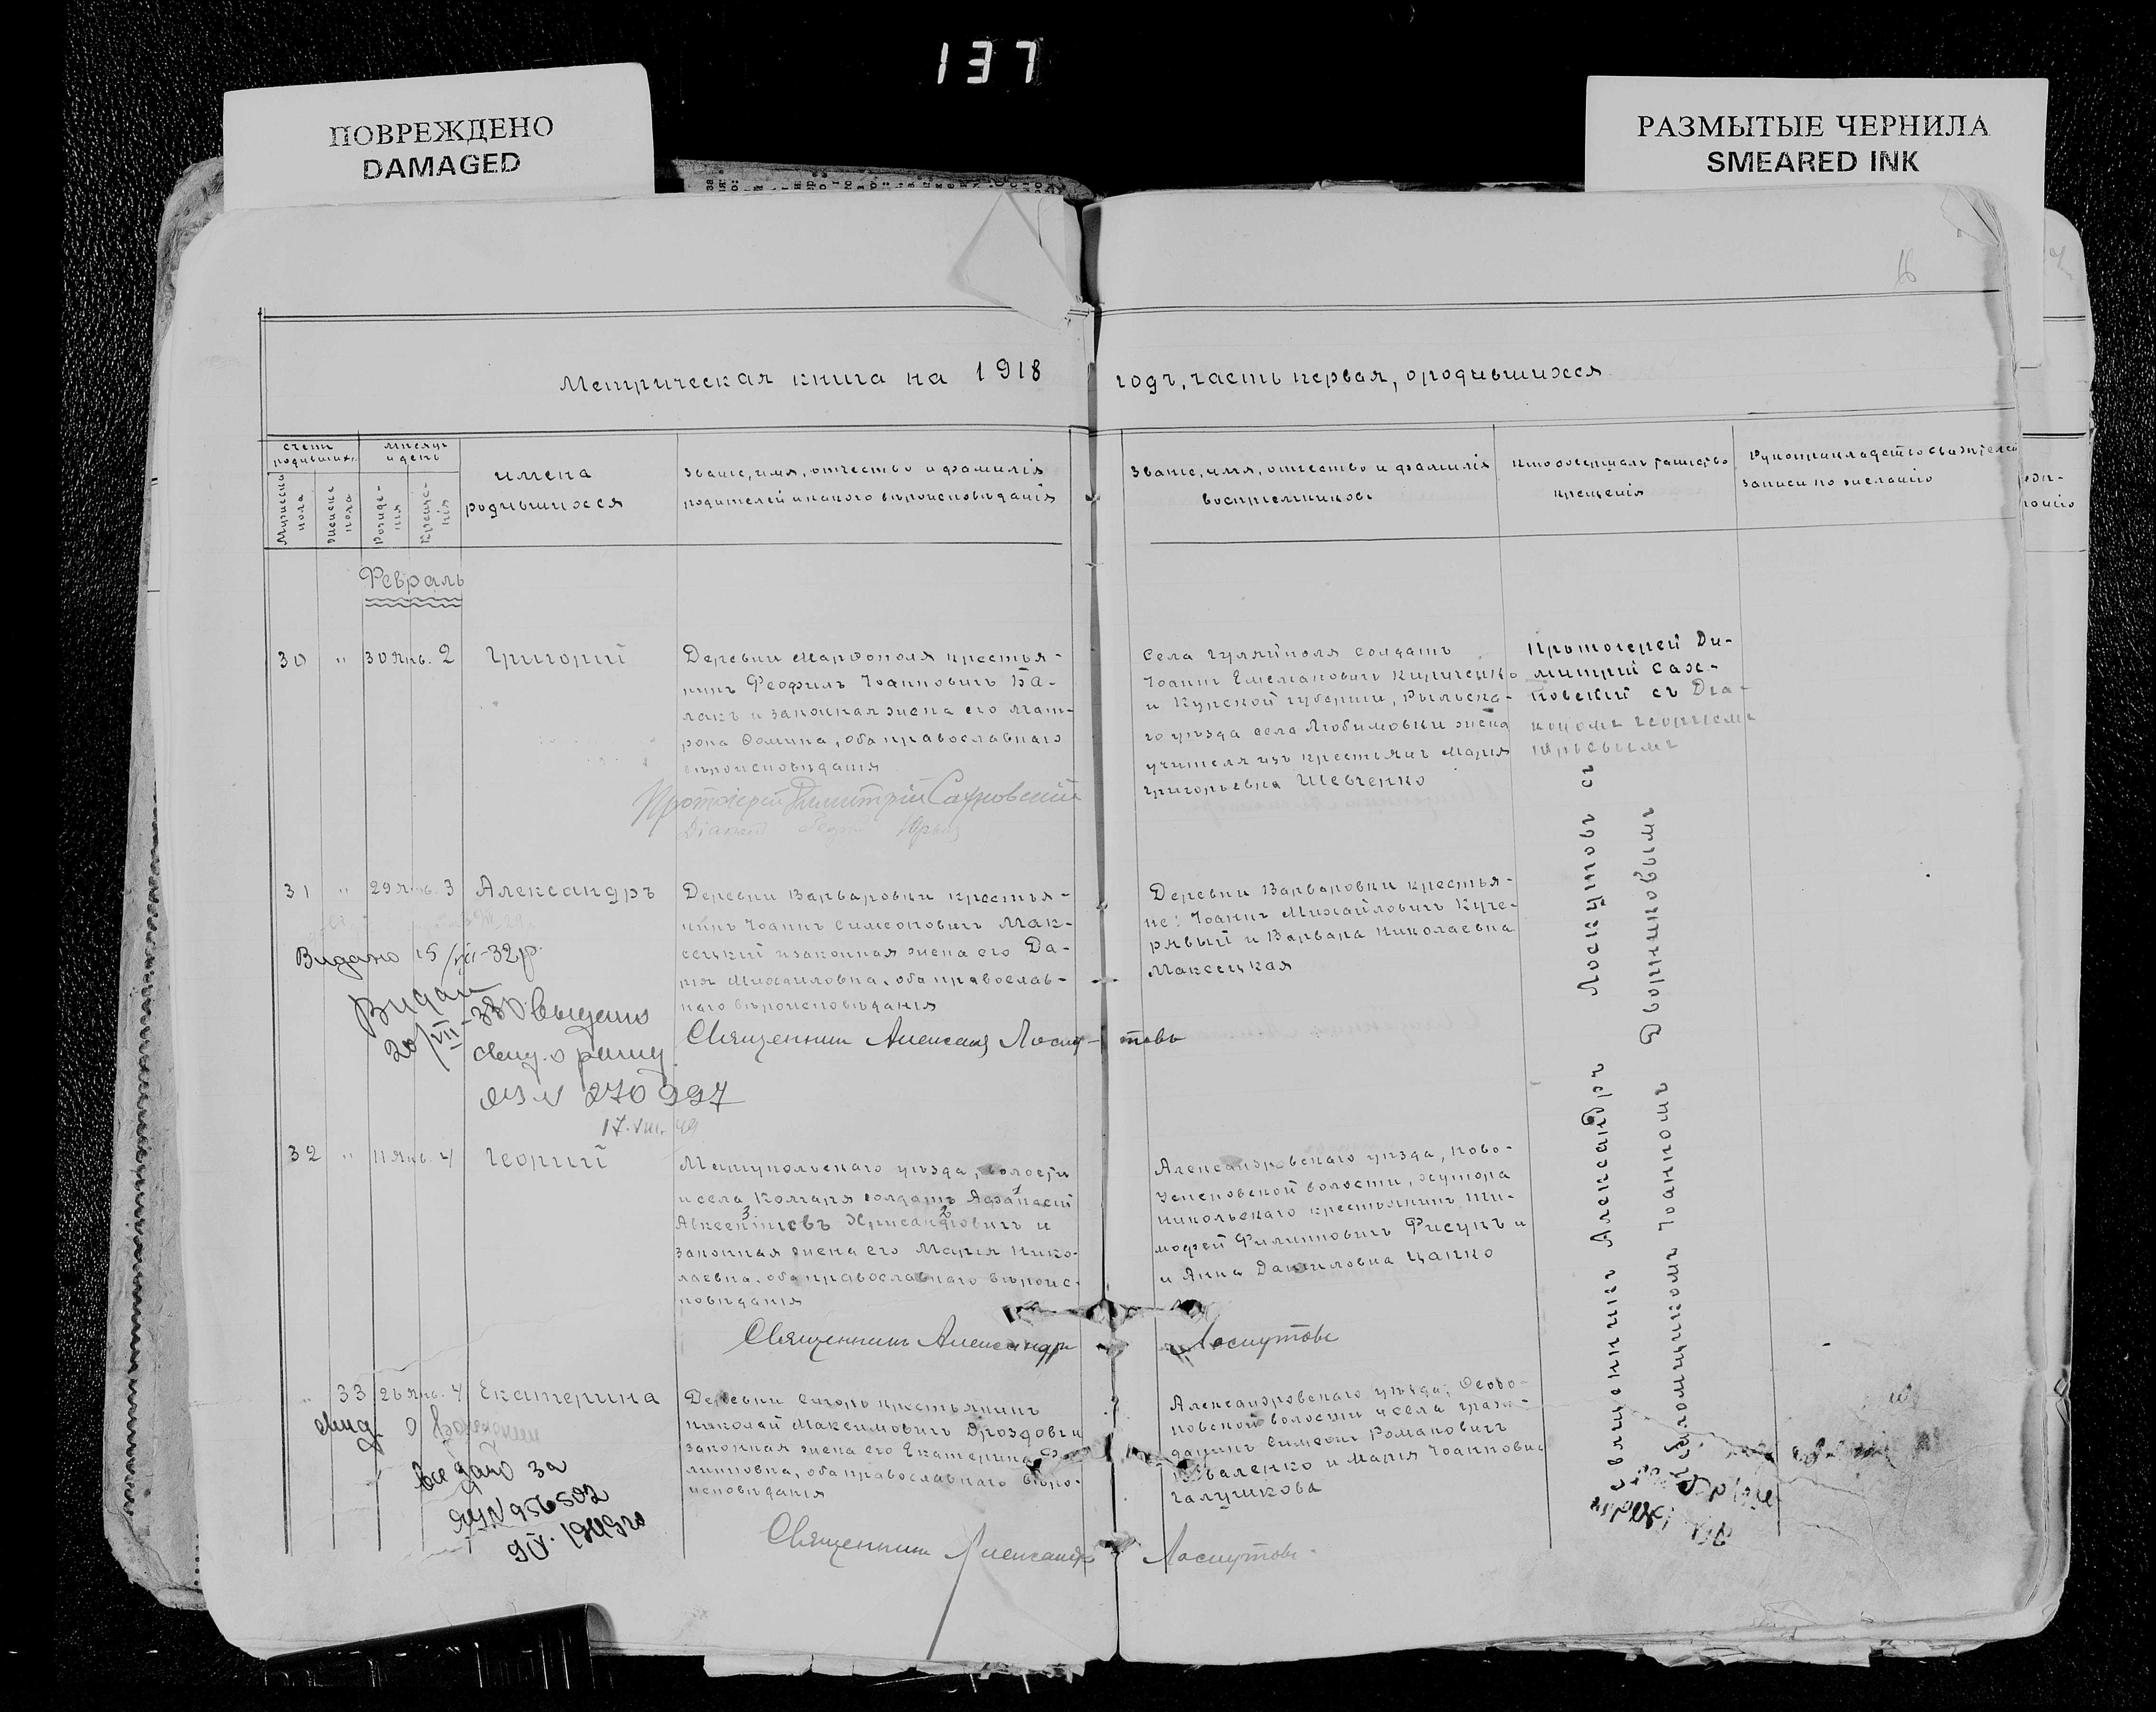 137
ПОВРЕЖДЕНО
DAMAGED
РАЗМЫТЫЕ ЧЕРНИЛА
SMEARED INK
16
Метрическая книга на 1918 годъ, часть первая, о родившихся
счетъ родившихъ
мѣсяцъ и день
Мужеска пола
Женска пола
Рожде-
нія
Креще-
нія
имена
родившихся
Званіе, имя, отчество и фамилія
родителей и какого вѣроисповѣданія
Званіе, имя, отчество и фамилія
воспріемниковъ
Кто совершалъ таинство
крещенія
Рукоприкладство свидѣтелей
записи по желанію
Февраль
30 " 30 Янв. 2 Григорій
Деревни Марфополя крестья-
нинъ Феофилъ Іоанновичъ Ба-
лакъ и законная жена его Мат-
рона Фомина, оба православнаго
вѣроисповѣданія
Протоіерей Димитрій Сахновскій
Діаконъ
Села Гуляйполя солдатъ
Іоаннъ Емеліановичъ Кириченко
и Курской губерніи, Рыльска-
го уѣзда села Любимовки жена
учителя изъ крестьянъ Марія
Григорьевна Шевченко
Протоіерей Ди-
митрій Сах-
новскій съ Діа-
кономъ Георгіемъ
Юрьевымъ
31 " 29 Янв. 3 Александръ
Деревни Варваровки крестья-
нинъ Іоаннъ Симеоновичъ Мак-
сецкій и законная жена его Да-
рія Михаиловна, оба православ-
наго вѣроисповѣданія
Священникъ Александръ Лоскутовъ
Деревни Варваровки крестья-
не: Іоаннъ Михайловичъ Куче-
рявый и Варвара Николаевна
Максецкая
Видано 15/VII-32р.
Видан
20/VII-33
Выдано
свид. о рожд.
ЯЗ N 270997
17.VIII.49
32 " 11 Янв. 4 Георгій
Мелитопольскаго уѣзда, волости
и села Колгаря солдатъ Афанасій
Авксентіевъ Хрисанфовичъ и
законная жена его Марія Нико-
лаевна, оба православнаго вѣроис-
повѣданія
Священникъ Александръ Лоскутовъ
Александровскаго уѣзда, Ново-
Успеновской волости, хутора
Никольскаго крестьянинъ Ти-
мофей Филипповичъ Фисунъ и
и Анна Даниловна Цапко
" 33 26 Янв. 4 Екатерина
Деревни крестьянинъ
Николай Максимовичъ Дроздовъ и
законная жена его Екатерина Фи-
липповна, оба православнаго вѣро-
исповѣданія
Священникъ Александръ Лоскутовъ
Александровскаго уѣзда,
волости и села граж-
данинъ Симеонъ Романовичъ
Коваленко и Марія Іоанновна
Галушкова
Свид. о
выдано за
N 956502
9/IV.1949г
Священникъ Александръ Лоскутовъ съ
псаломщикомъ Іоанномъ Дворниковымъ